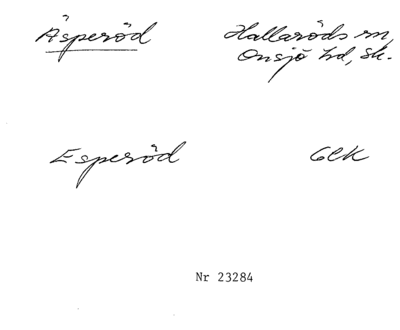 Äsperöd Hallaröds sn,
Onsjö hd, Sk.
Esperöd GEK
Nr 23284